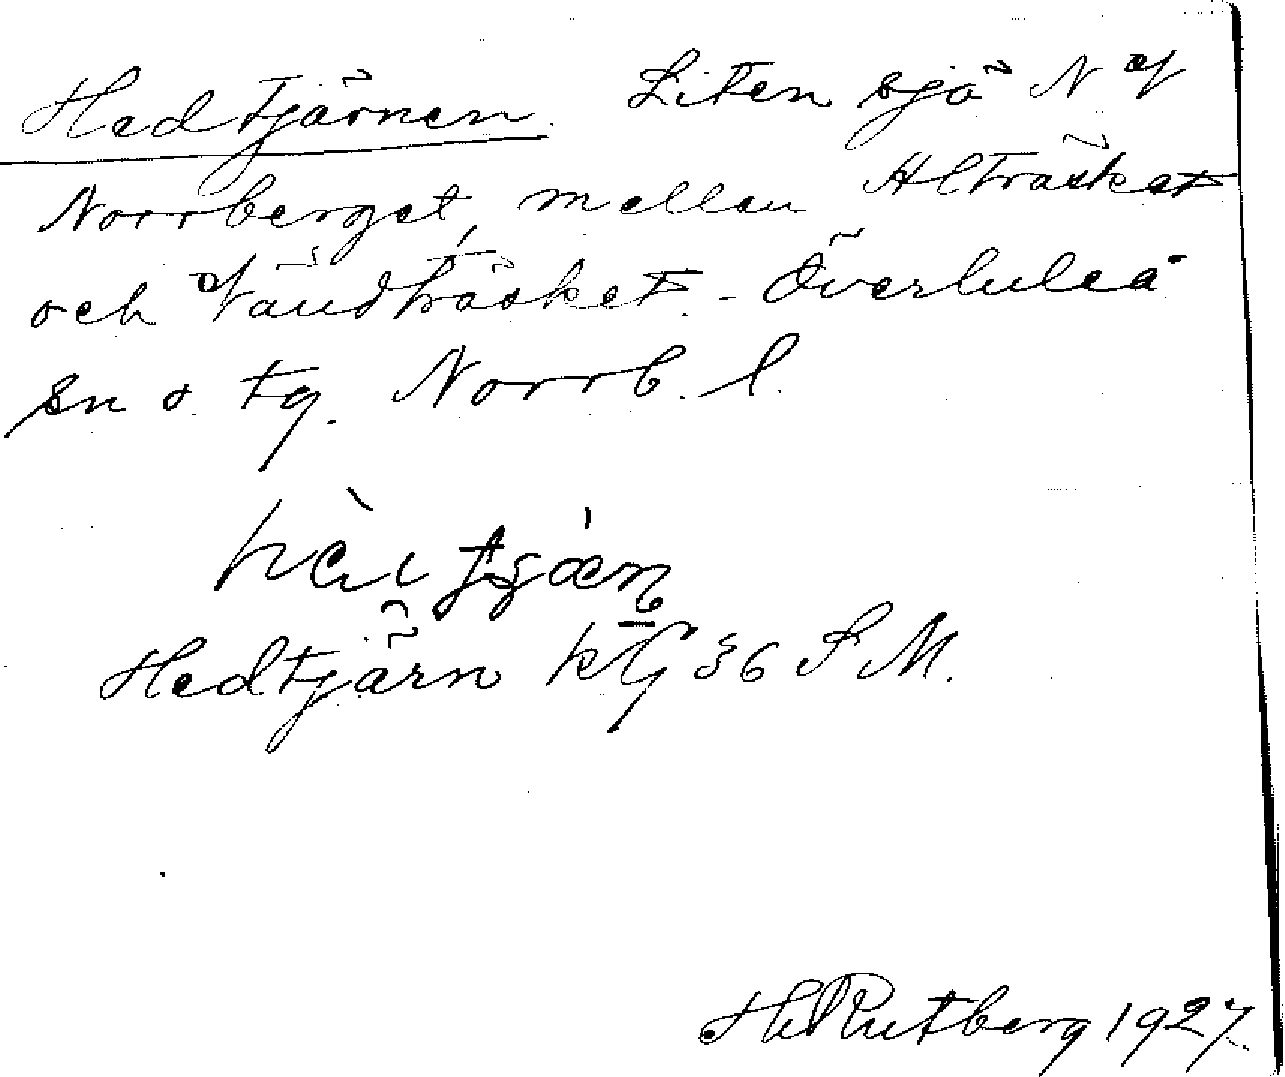 Hedtjärnen. Liten sjö N of
Norrberget, mellan Alträsket
och Vändträsket. - Överluleå
sn o. tg. Norrb. l.
Hedtjärn 36 S M.
H Rutberg 1927.